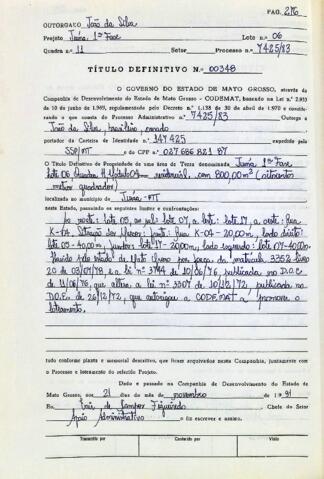 PAG. 276
OUTORGADO João da Silva
Projeto Juína, 1ª Fase Lote n.º 06
Quadra n.º 11 Setor Processo n.º 7425/83
TÍTULO DEFINITIVO N.º 00348
O GOVERNO DO ESTADO DE MATO GROSSO, através da
Companhia de Desenvolvimento do Estado de Mato Grosso - CODEMAT, baseado na Lei n.º 2.953
de 10 de junho de 1.969, regulamentado pelo Decreto n.º 1.138 de 30 de abril de 1.970 e considerando
o que consta do Processo Administrativo n.º 7425/83 Outorga a
João da Silva, brasileiro, casado
portador da Carteira de Identidade n.º 147425 expedida por
SSP/MT e do CPF n.º 027 686 821 87
O Título Definitivo de Propriedade de uma área de Terra denominada Juína, 1ª Fase
Lote 06, Quadra 11, residencial, com 800,00m² (oitocentos
metros quadrados)
localizada no município de Juína - MT
neste Estado, passando os seguintes limites e confrontações:
Ao norte: lote 05, ao sul: lote 07, a leste: lote 17, a oeste: Rua
K-04. Situação dos Marcos: frente: Rua K-04 - 20,00m, lado direito:
lote 05 - 40,00m, fundos: lote 17 - 20,00m, lado esquerdo: lote 07 - 40,00m.
Havido pelo estado de Mato Grosso por força da matrícula 3352 livro
20 de 03/07/78 e a lei nº 3744 de 10/06/76, publicada no D.O.E.
de 11/06/76, que altera a lei nº 3307 de 10/12/72, publicada no
D.O.E. de 26/12/72, que autorizou a CODEMAT a promover o
loteamento.
tudo conforme planta e memorial descritivo, que ficam arquivados nesta Companhia, juntamente com
o Processo e loteamento do referido Projeto.
Dado e passado na Companhia de Desenvolvimento do Estado de
Mato Grosso, aos 21 dias do mês de novembro de 1991
Eu de Campos Figueiredo Chefe do Setor
Apoio Administrativo o fiz escrever e assino.
Transcrito por Conferido por Visto